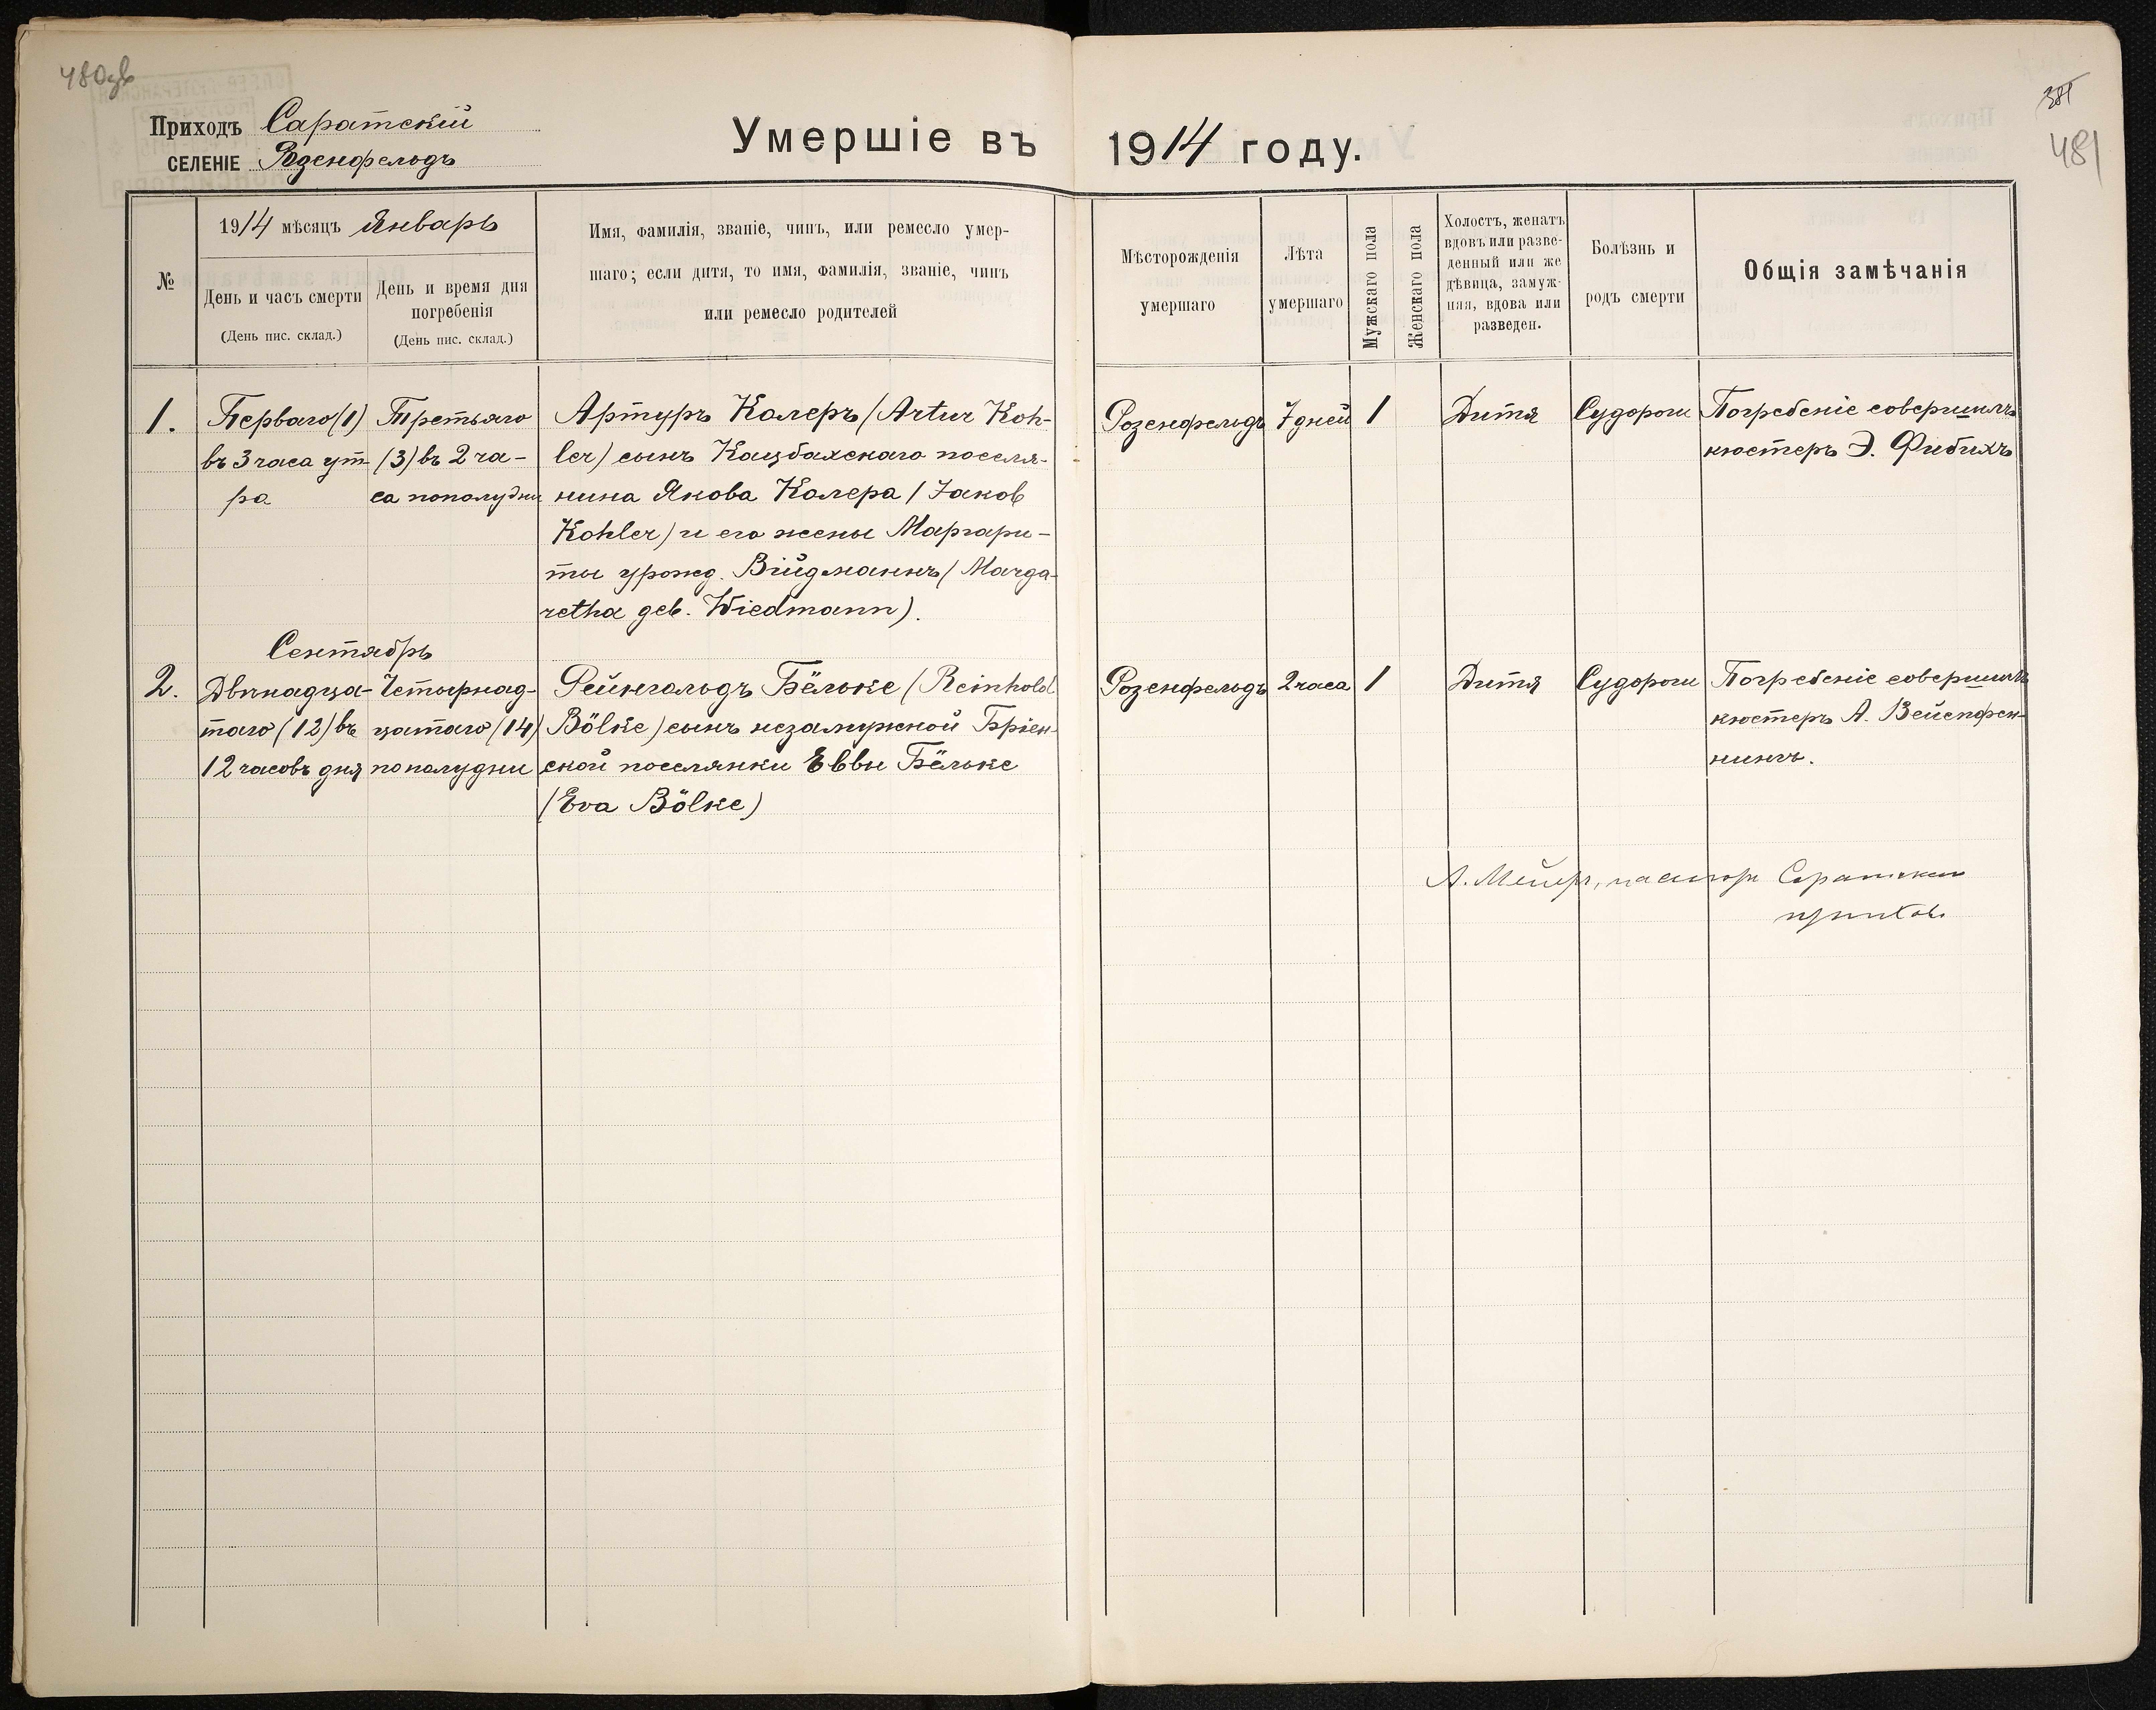 480об
381
481
Приходъ Саратскій
СЕЛЕНІЕ Розенфельдъ
Умершіе въ 1914 году.
№
1914 мѣсяцъ Январь
День и часъ смерти
(День пис. склад.)
День и время дня
погребенія
(День пис. склад.)
Имя, фамилія, званіе, чинъ, или ремесло умер-
шаго; если дитя, то имя, фамилія, званіе, чинъ
или ремесло родителей
Мѣсторожденія
умершаго
Лѣта
умершаго
Мужскаго пола
Женскаго пола
Холостъ, женатъ
вдовъ или разве-
денный или же
дѣвица, замуж-
няя, вдова или
разведен.
Болѣзнь и
родъ смерти
Общія замѣчанія
1.
Перваго (1)
въ 3 часа ут-
ра
Третьяго
(3) въ 2 ча-
са пополудни
Артуръ Колеръ (Artur Koh-
ler) сынъ Кацбахскаго поселя-
нина Якова Колера (Jakob
Kohler) и его жены Маргари-
ты урожд. Війдманнъ (Marga-
retha geb. Wiedmann).
Розенфельдъ
7 дней
1
Дитя
Судороги
Погребеніе совершилъ
кюстеръ Э. Фибихъ
Сентябрь
2.
Двѣнадца-
таго (12) въ
12 часовъ дня
Четырнад-
цатаго (14)
пополудни
Рейнгольдъ Бёльке (Reinhold
Bölke) сынъ незамужной Бріен-
ской поселянки Еввы Бёльке
(Eva Bölke)
Розенфельдъ
2 часа
1
Дитя
Судороги
Погребеніе совершилъ
кюстеръ А. Вейспфен-
нингъ.
А. Мейеръ, пасторъ Саратскаго
прихода